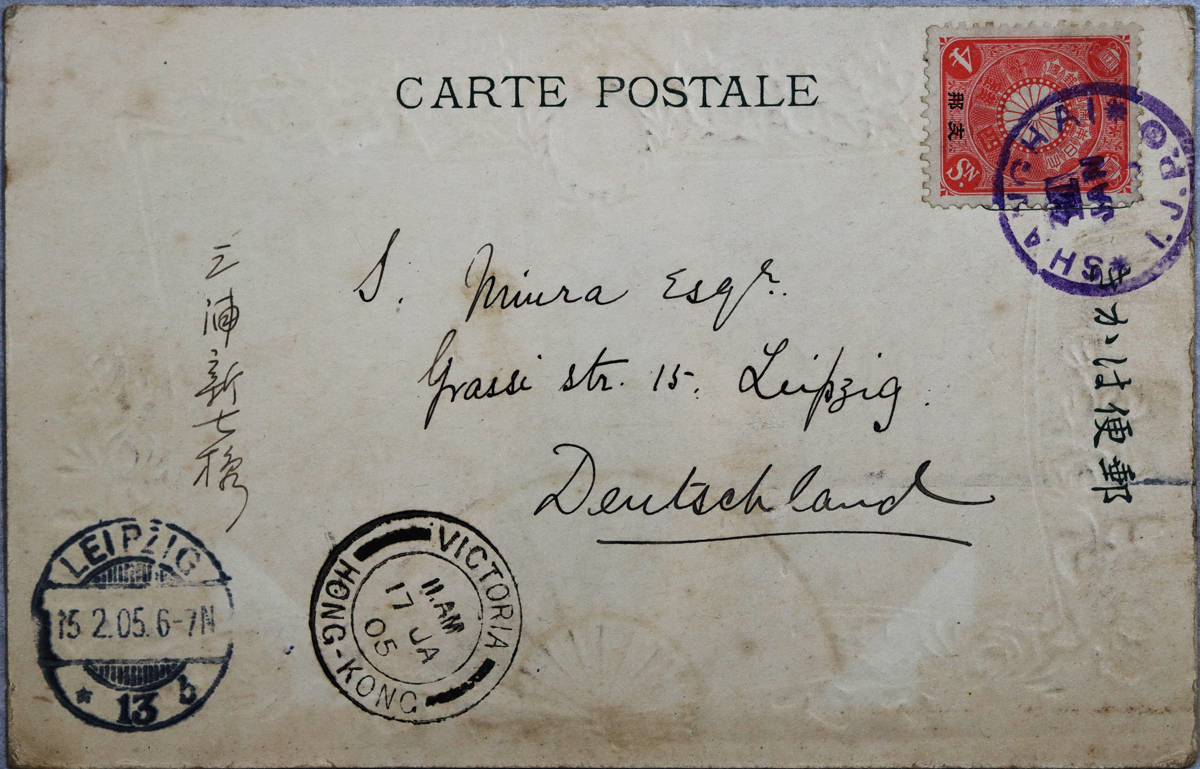 CARTE POSTALE
4
Sn.
支那
SHANGHAI I.J.P.O.
JAN
S. Miura Esqr.
Grassi str. 15. Leipzig.
Deutschland
三浦新七様
郵便はかき
LEIPZIG
15.2.05.6-7N
* 13 b
VICTORIA
HONG-KONG
11.AM
17 JA
05